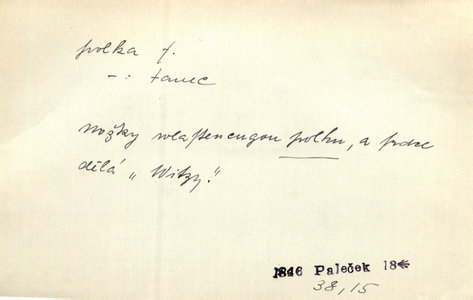 polka f.
–: tanec
nožky wlastencugou polku, a prdce
dělá „Witzy."
1846 Paleček 18
38,15